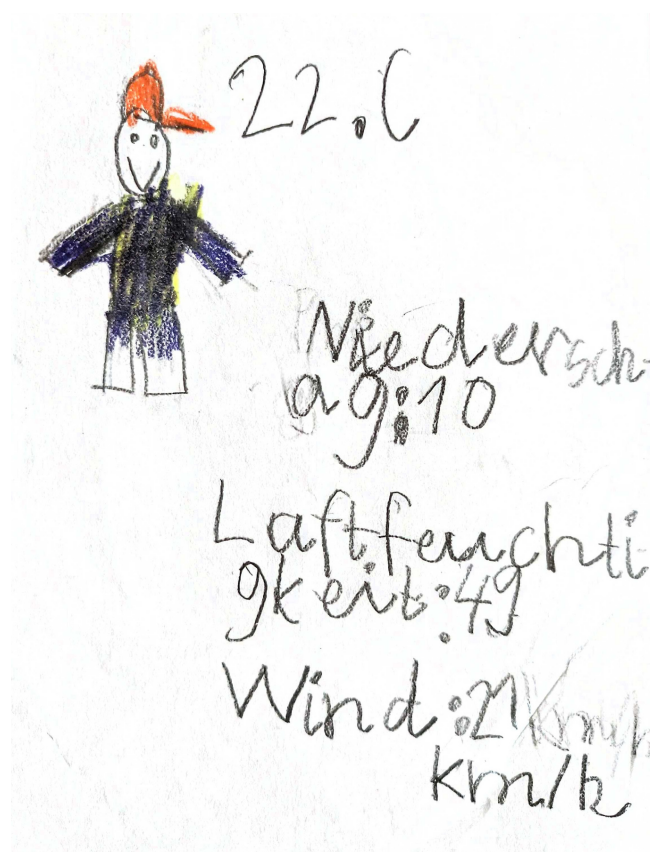 22.C
Niedersch-
ag:10
Luftfeuchti
gkeit:49
Wind:21 km/h
km/h